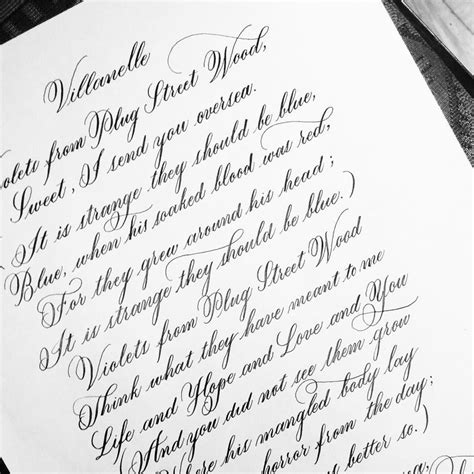 Villanelle
olets from Plug Street Wood,
Sweet, I send you oversea.
(It is strange they should be blue,
Blue, when his soaked blood was red,
For they grew around his head;
It is strange they should be blue.)
Violets from Plug Street Wood
Think what they have meant to me
Life and Hope and Love and You
(And you did not see them grow
here his mangled body lay
horror from the day;
t better so.)